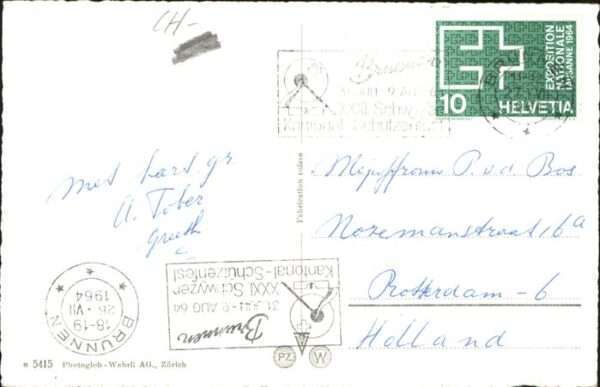 CH-
EXPOSITION
NATIONALE
LAUSANNE 1964
10 HELVETIA
Brunnen
XXXI Schwyzer
Kantonal-Schützenfest
Fabrication suisse
Met hart. gr
A. Tober
Mejuffrouw P. v. d. Bos.
Nozemanstraat 16a
Rotterdam-6
Holland
BRUNNEN
18-19
26.-VII
1964
Brunnen
31. JULI - 9. AUG 64
XXXI Schwyzer
Kantonal-Schützenfest
PZ W
5415 Photoglob-Wehrli AG., Zürich